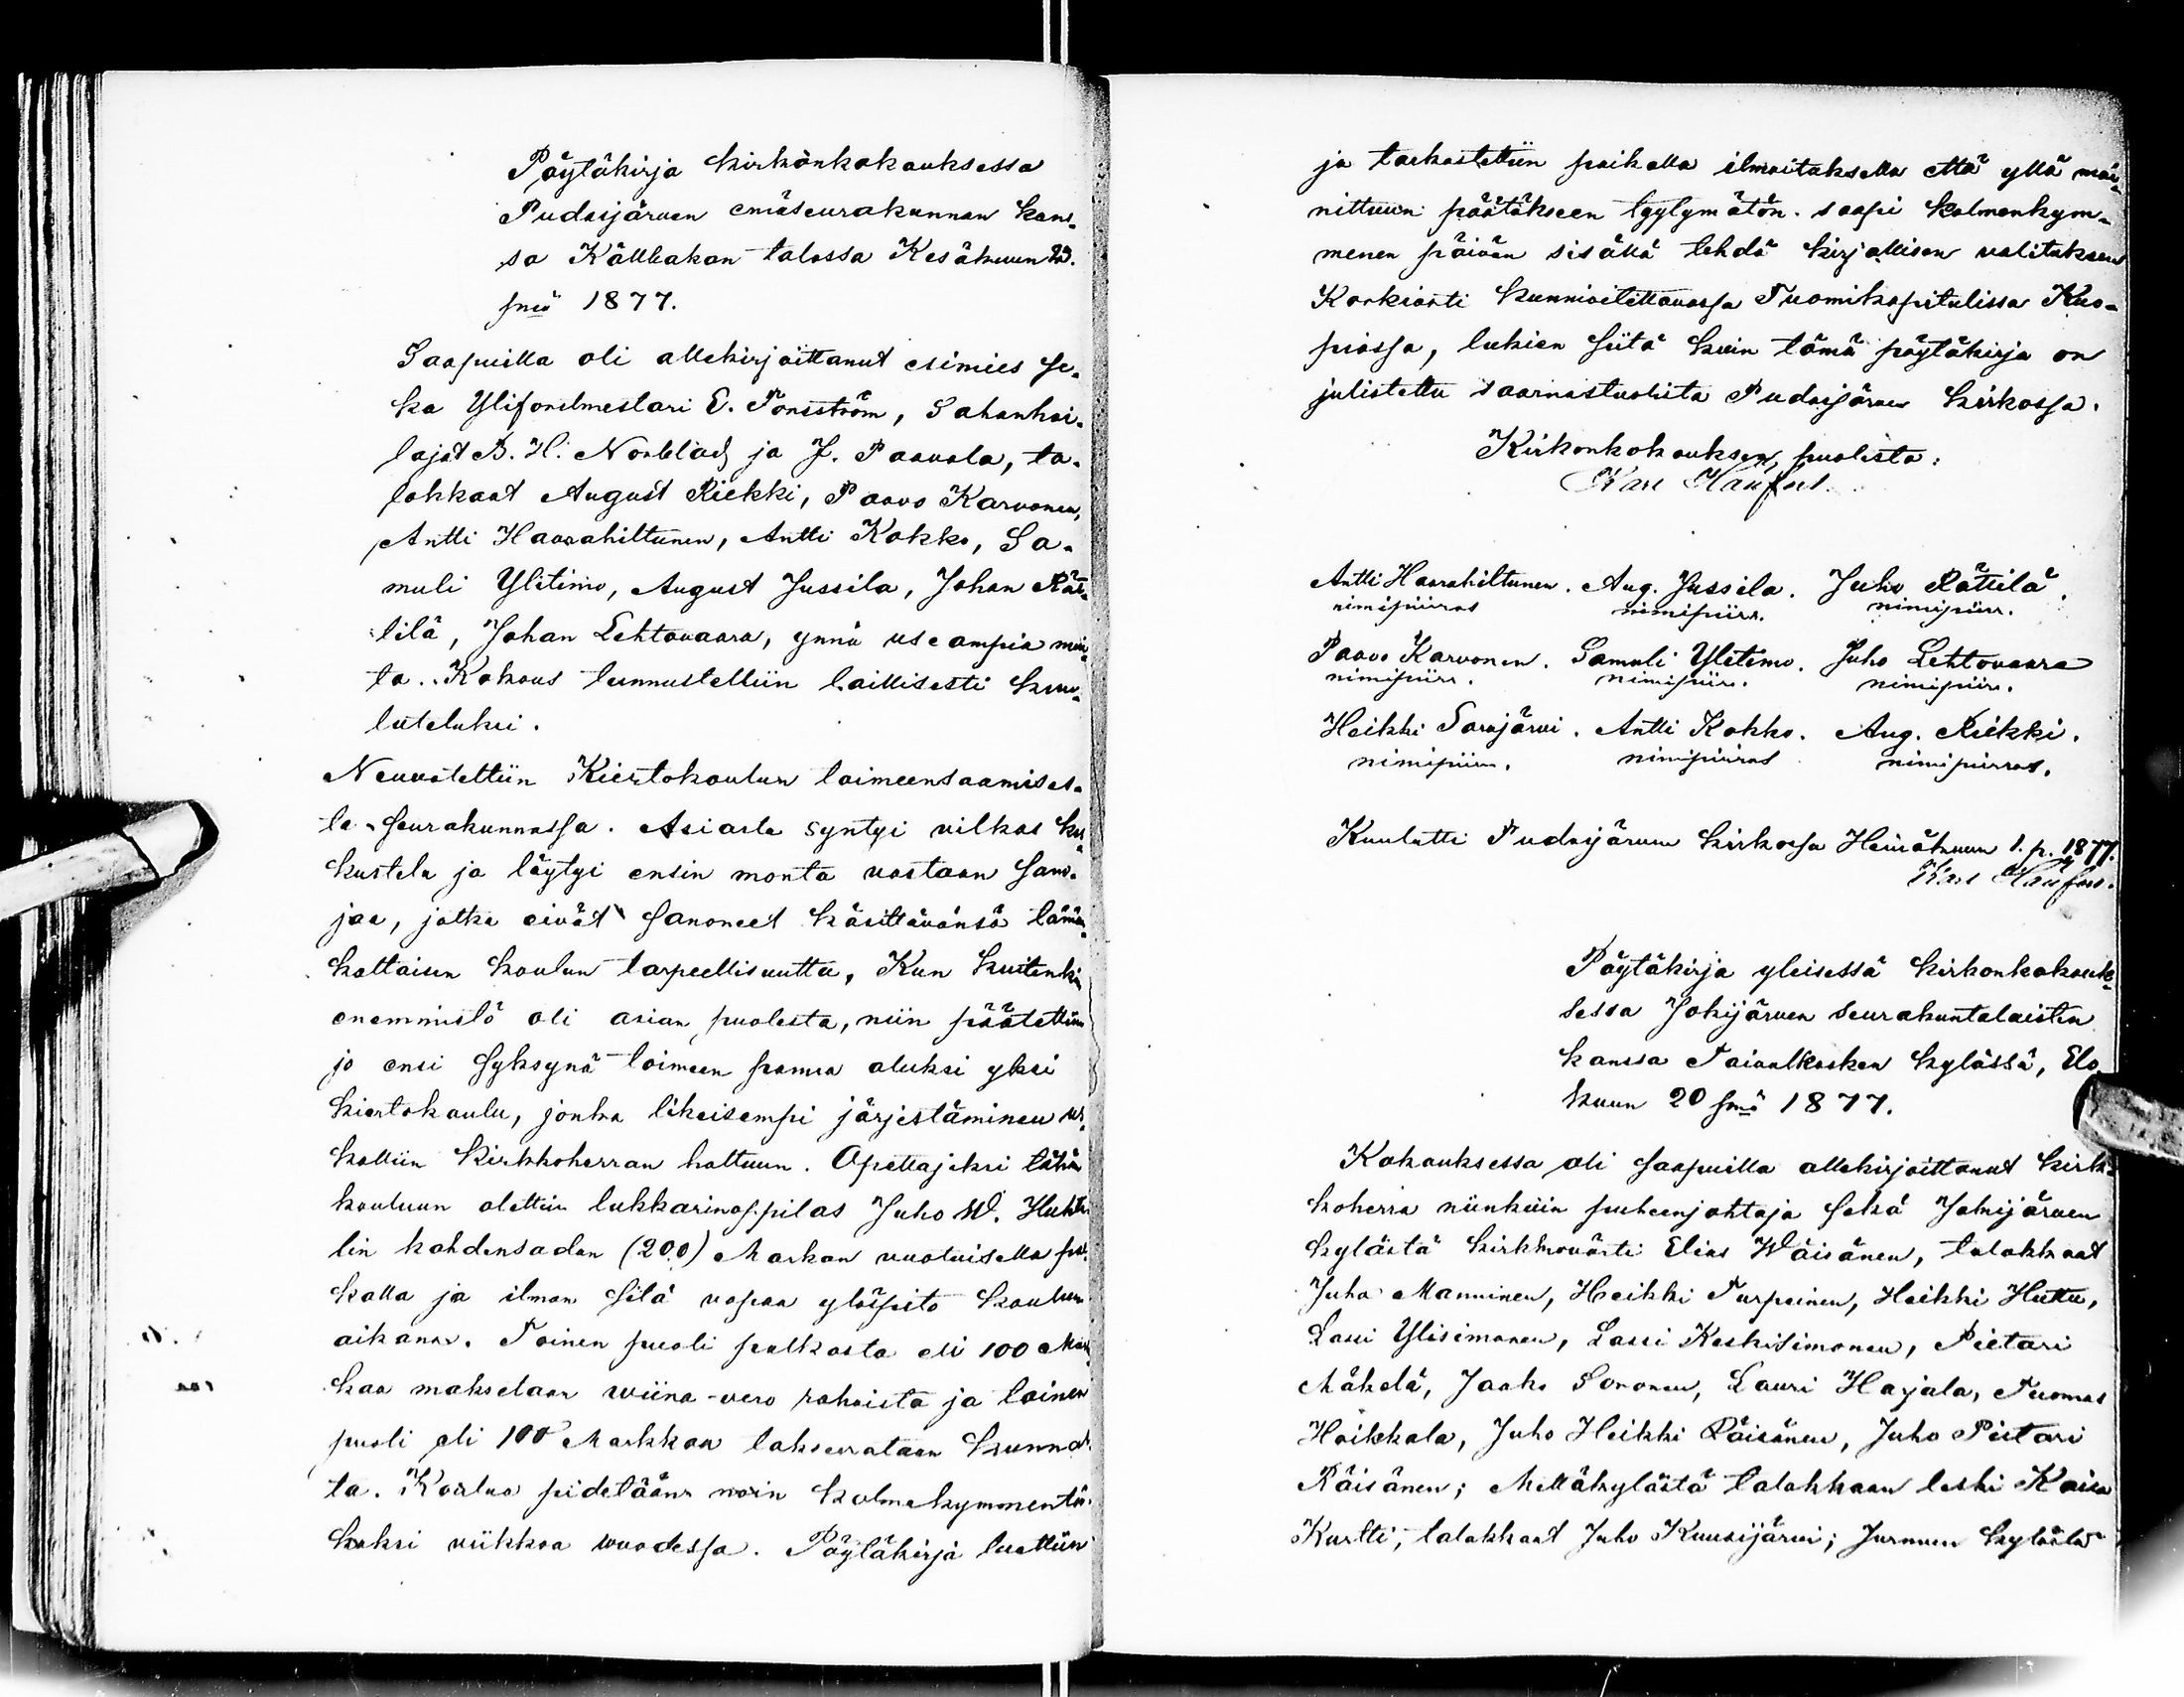 Pöytäkirja kirkonkokouksessa
Pudasjärven emäseurakunnan kans-
sa Källbakan talossa Kesäkuun
pnä 1877.
Saapuilla oli allekirjoittanut esimies se-
kä Yliforstmestari E. Tönsström, Sahanhoi-
tajat B. H. Norblad ja J. Paavola, ta-
lokkaat August Riekki, Paavo Karvonen,
Antti Haarahiltunen, Antti Kokko, Sa-
muli Ylitimo, August Jussila, Johan Rät-
tilä, Johan Lehtovaara, ynnä useampia mui-
ta. Kokous tunnustettiin laillisesti kuu-
lutetuksi.
Neuvoteltiin Kiertokoulun toimeensaamises-
ta seurakunnassa. Asiasta syntyi vilkas kes-
kustelu ja löytyi ensin monta vastaan sano-
jaa, jotka eivät sanoneet käsittävänsä tämän-
kaltaisen koulun tarpeellisuutta, Kun kuitenki
enemmistö oli asian puolesta, niin päätettiin
jo ensi syksynä toimeen panna aluksi yksi
kiertokoulu, jonka likeisempi järjestäminen us-
kottiin Kirkkoherran haltuun. Opettajaksi tähän
kouluun otettiin lukkarinoppilas Juho W. Huhta-
lin kahdensadan (200) Markan vuotuisella pal-
kalla ja ilman sitä vapaa ylöspito koulun
aikana. Toinen puoli palkasta eli 100 Mark-
kaa maksetaan wiina-vero rahoista ja toinen
puoli eli 100 Markkaa takseerataan kunnal-
ta. Koulua pidetään noin kolmekymmentä-
kaksi viikkoa wuodessa. Pöytäkirja luettiin
ja tarkastettiin paikalla ilmoituksella että yllä mai-
nittuun päätökseen tyytymätön saapi kolmenkym-
menen päivän sisällä tehdä kirjallisen valituksen
Korkiasti kunnioitettavassa Tuomikapitulissa Kuo-
piossa, lukien siitä kuin tämä pöytäkirja on
julistettu saarnastuolista Pudasjärven kirkossa.
Kirkonkokouksen puolesta:
Antti Haarahiltunen. Aug. Jussila. Juho Rättilä.
nimipiirros nimipiirr. nimipiirr.
Paavo Karvonen. Samuli Ylitimo. Juho Lehtovaara
nimipiirr. nimipiirr. nimipiirr.
Heikki Sarajärvi. Antti Kokko. Aug. Riekki.
nimipiirr. nimipiirros nimipiirros.
Kuulutti Pudasjärven kirkossa Heinäkuun 1. p. 1877.
Pöytäkirja yleisessä kirkonkokouk-
sessa Jokijärven seurakuntalaisten
kanssa Taivalkosken kylässä, Elo-
kuun 20 pnä 1877.
Kokouksessa oli saapuilla allekirjoittanut kirk-
koherra niinkuin puheenjohtaja sekä Jokijärven
kylästä kirkkovärti Elias Wäisänen, talokkaat
Juho Manninen, Heikki Turpeinen, Heikki Huttu,
Lassi Ylisimonen, Lassi Keskisimonen, Pietari
Mäkelä, Jaako Soronen, Lauri Harjala, Tuomas
Hoikkala, Juho Heikki Räisänen, Juho Pietari
Räisänen; Metsäkylästä talokkaan leski Kaisa
Kurtti, talokkaat Juho Kuusijärvi; Jurmun kylästä